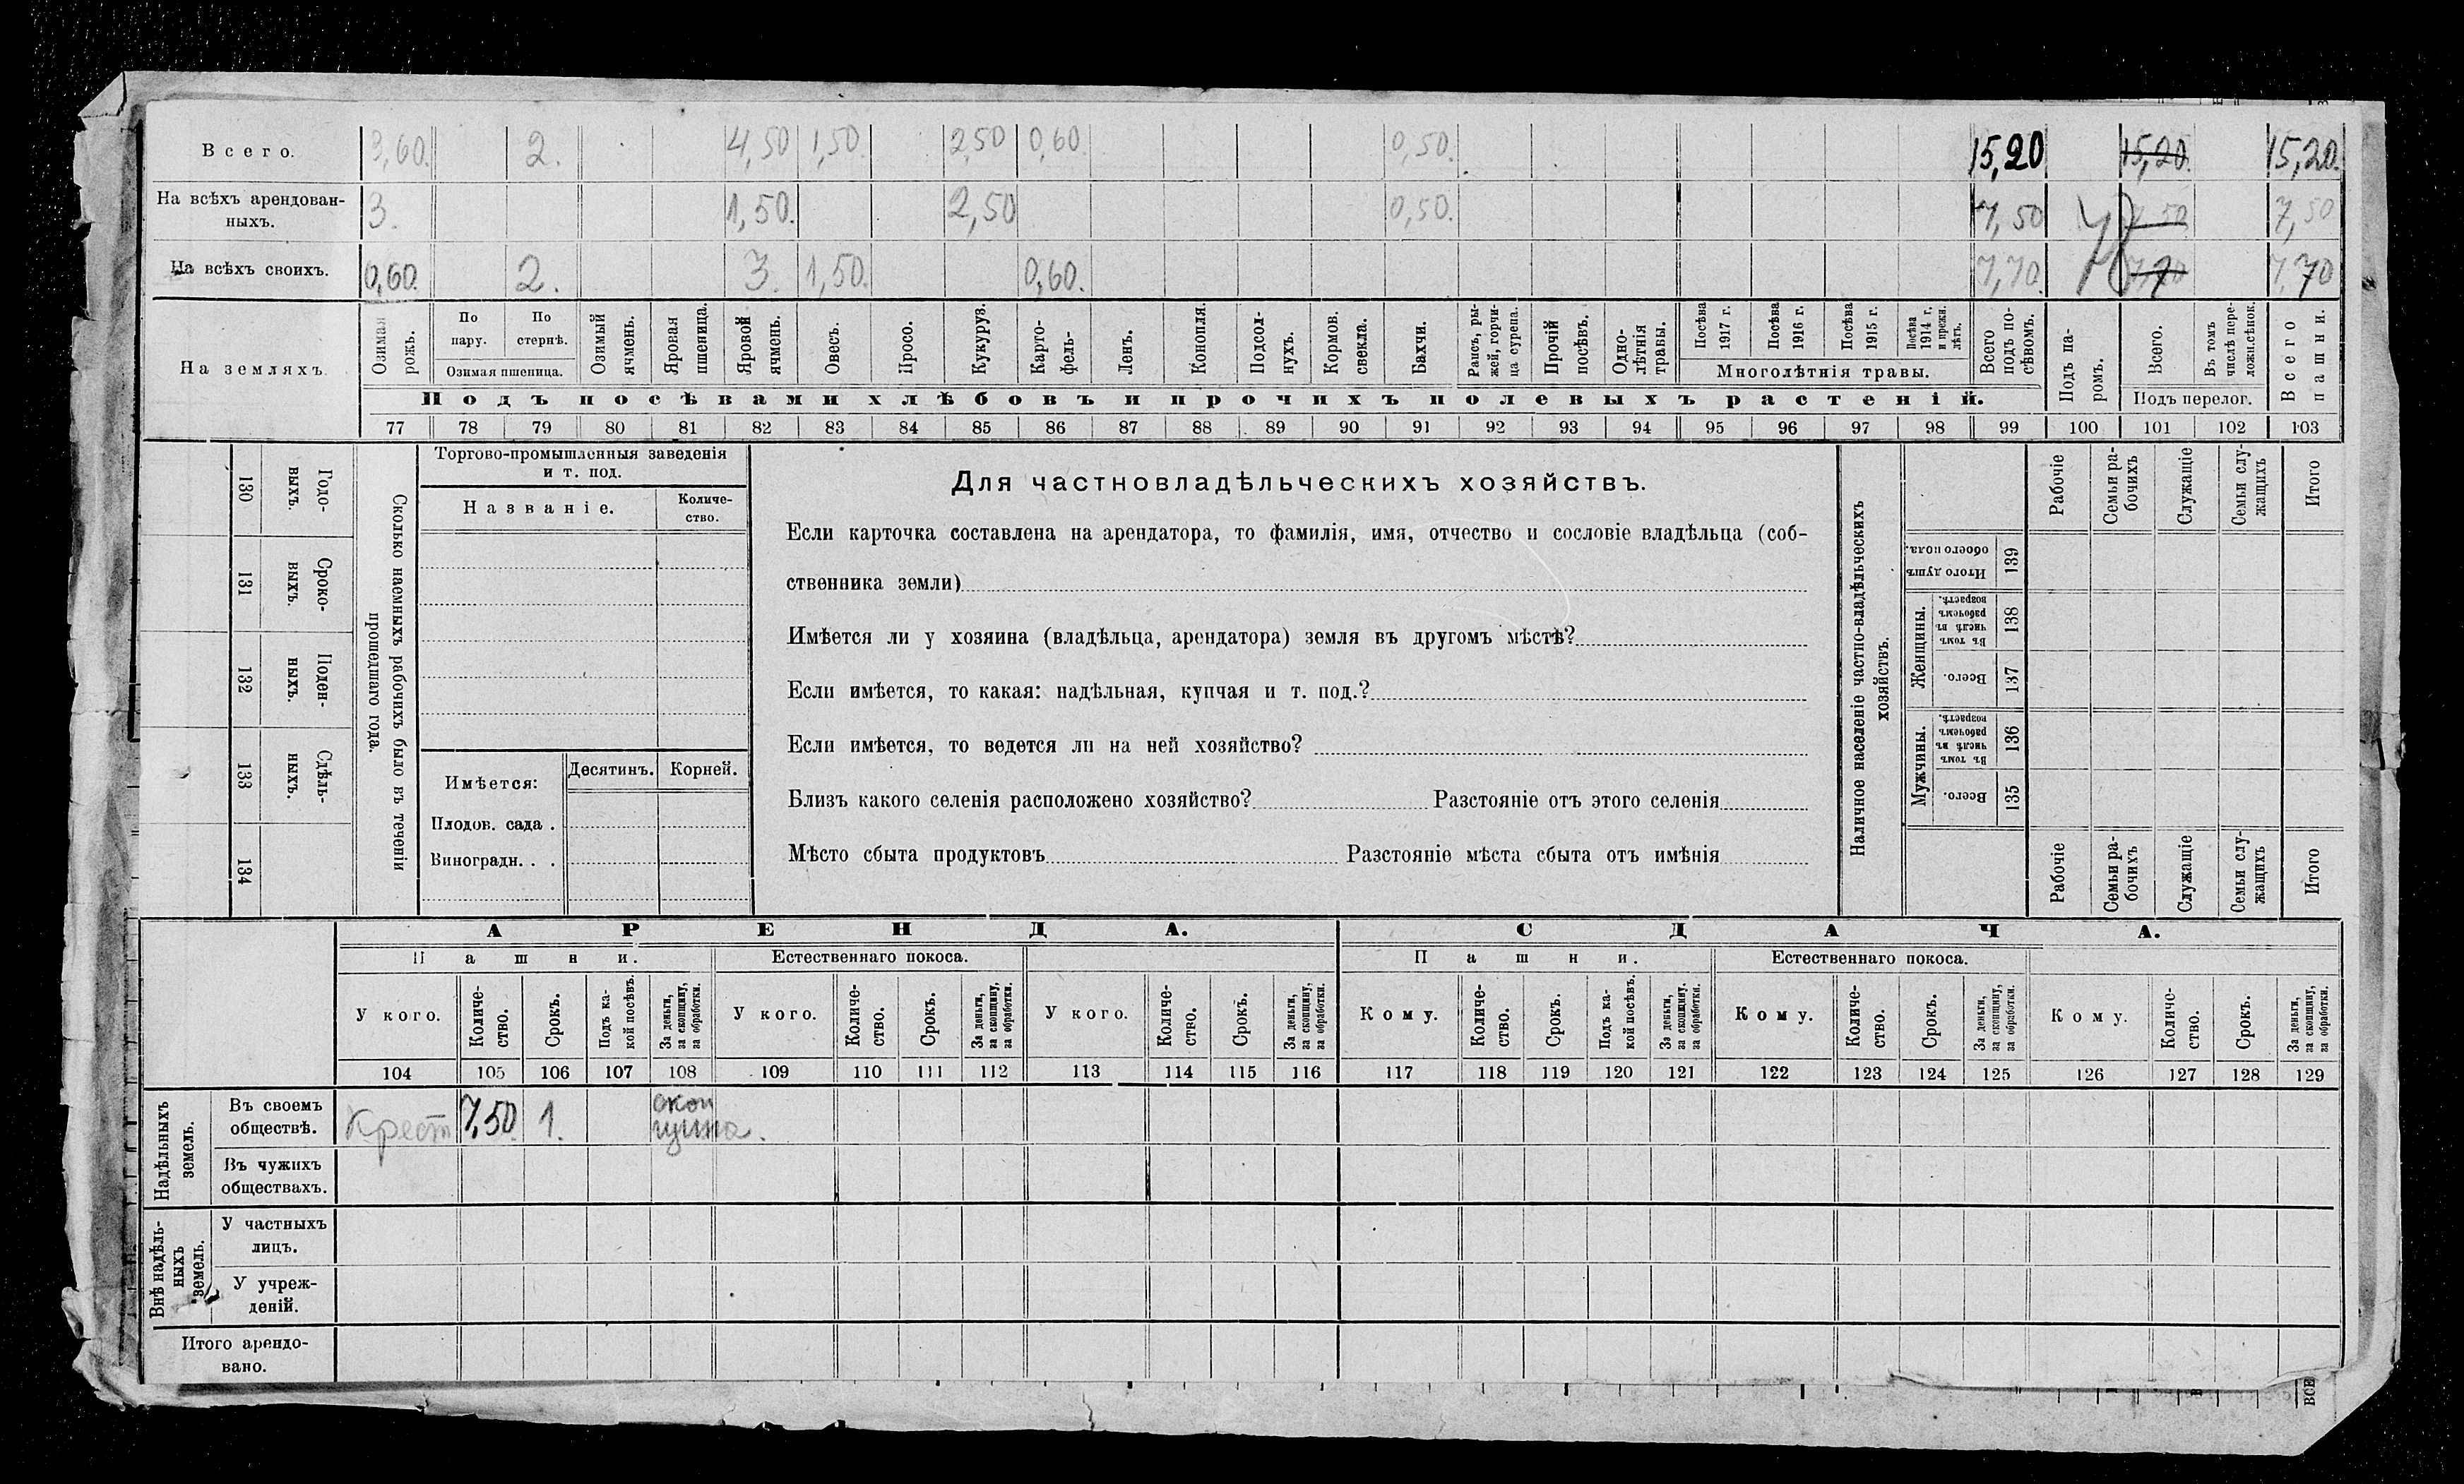 Всего. 3,60. 2. 4,50 1,50. 2,50 0,60. 0,50. 15,20 15,20. 15,20.
На всѣхъ арендован-
ныхъ. 3. 1,50. 2,50 0,50. 7,50 7,50 7,50
На всѣхъ своихъ. 0,60. 2. 3. 1,50. 0,60. 7,70. 7,70 7,70
На земляхъ.
Озимая рожь.
По пару.
По стернѣ.
Озимая пшеница.
Озимый ячмень.
Яровая пшеница.
Яровой ячмень.
Овесъ.
Просо.
Кукуруз.
Карто-
фель.
Ленъ.
Конопля.
Подсол-
нухъ.
Кормов. свекла.
Бахчи.
Рапсъ, ры-
жей, горчи-
ца сурепа.
Прочій посѣвъ.
Одно-
лѣтнія травы.
Посѣва 1917 г.
Посѣва 1916 г.
Посѣва 1915 г.
Посѣва 1914 г. и прежн. лѣтъ.
Многолѣтнія травы.
Всего подъ по-
сѣвомъ.
Подъ па-
ромъ.
Всего.
Въ томъ числѣ пере-
ложн. сѣнок.
Подъ перелог.
Всего пашни.
Подъ посѣвами хлѣбовъ и прочихъ полевыхъ растеній.
77 78 79 80 81 82 83 84 85 86 87 88 89 90 91 92 93 94 95 96 97 98 99 100 101 102 103
130 Годо-
выхъ.
131 Сроко-
выхъ.
132 Поден-
ныхъ.
133 Сдѣль-
ныхъ.
134
Сколько наемныхъ рабочихъ было въ теченіи
прошедшаго года.
Торгово-промышленныя заведенія
и т. под.
Названіе. Количе-
ство.
Имѣется: Десятинъ. Корней.
Плодов. сада .
Виноградн. . .
Для частновладѣльческихъ хозяйствъ.
Если карточка составлена на арендатора, то фамилія, имя, отчество и сословіе владѣльца (соб-
ственника земли)
Имѣется ли у хозяина (владѣльца, арендатора) земля въ другомъ мѣстѣ?
Если имѣется, то какая: надѣльная, купчая и т. под.?
Если имѣется, то ведется ли на ней хозяйство?
Близъ какого селенія расположено хозяйство? Разстояніе отъ этого селенія
Мѣсто сбыта продуктовъ Разстояніе мѣста сбыта отъ имѣнія
Наличное населеніе частно-владѣльческихъ
хозяйствъ.
Рабочіе
Семьи ра-
бочихъ
Служащіе
Семьи слу-
жащихъ
Итого
Итого душъ обоего пола. 139
Женщины.
Въ томъ числѣ въ рабочемъ возрастѣ. 138
Всего. 137
Мужчины.
Въ томъ числѣ въ рабочемъ возрастѣ. 136
Всего. 135
Рабочіе
Семьи ра-
бочихъ
Служащіе
Семьи слу-
жащихъ
Итого
АРЕНДА. СДАЧА.
Пашни. Естественнаго покоса. Пашни. Естественнаго покоса.
У кого. Количе-
ство. Срокъ. Подъ ка-
кой посѣвъ. За деньги, за скопщину, за обработки.
У кого. Количе-
ство. Срокъ. За деньги, за скопщину, за обработки.
У кого. Количе-
ство. Срокъ. За деньги, за скопщину, за обработки.
Кому. Количе-
ство. Срокъ. Подъ ка-
кой посѣвъ. За деньги, за скопщину, за обработки.
Кому. Количе-
ство. Срокъ. За деньги, за скопщину, за обработки.
Кому. Количе-
ство. Срокъ. За деньги, за скопщину, за обработки.
104 105 106 107 108 109 110 111 112 113 114 115 116 117 118 119 120 121 122 123 124 125 126 127 128 129
Надѣльныхъ
земель.
Въ своемъ
обществѣ. Крест 7,50. 1. скоп
щина.
Въ чужихъ
обществахъ.
Внѣ надѣль-
ныхъ
земель.
У частныхъ
лицъ.
У учреж-
деній.
Итого арендо-
вано.